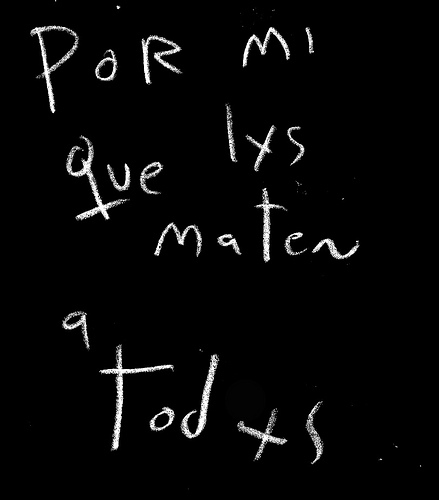 POR MI
que lxs
maten
a
Todxs